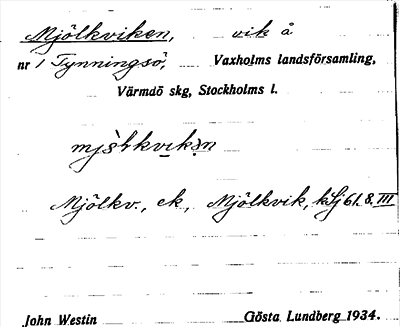 Mjölkviken, vik å
nr 1 Tynningsö, Vaxholms landsförsamling,
Värmdö skg, Stockholms l.
Mjölkv., ek, Mjölkvik, kSj 61.8.III
John Westin Gösta Lundberg 1934.